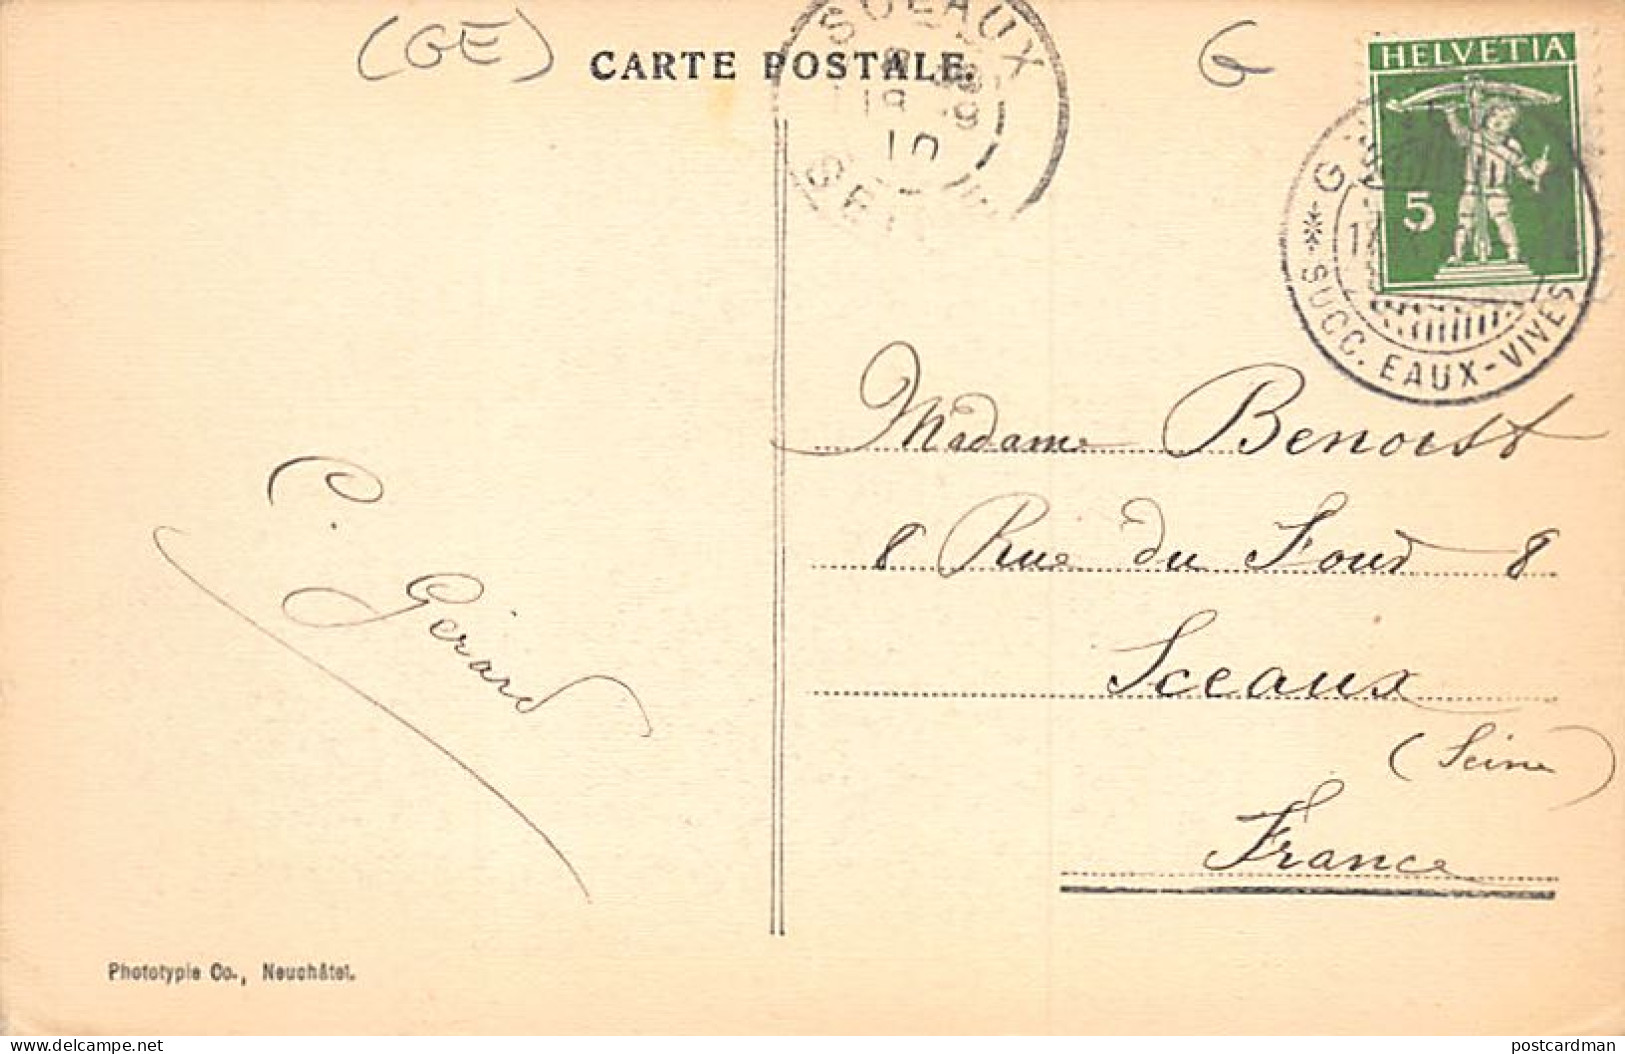 (GE)
CARTE POSTALE.
G
HELVETIA
5
SUCC. EAUX-VIVES
SCEAUX
18
10
Madame Benoist
8 Rue du Four 8
Sceaux
(Seine)
France
C. Gérard
Phototypie Co., Neuchâtel.
www.delcampe.net
postcardman